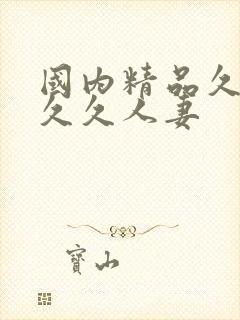 國内精品久
久久人妻
寶山